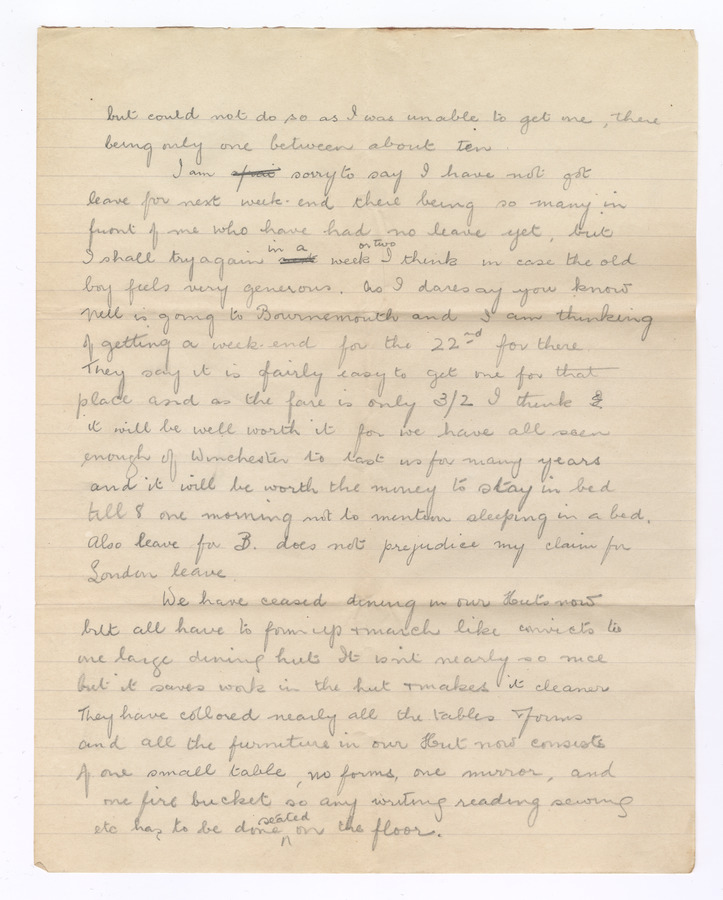 but could not do so as I was unable to get one, there
being only one between about ten.
I am afraid sorry to say I have not got
leave for next week-end there being so many in
front of me who have had no leave yet, but
I shall try again in a week or two I think in case the old
boy feels very generous. As I daresay you know
Nell is going to Bournemouth and I am thinking
of getting a week-end for the 22nd for there.
They say it is fairly easy to get one for that
place and as the fare is only 3/2 I think
it will be well worth it for we have all seen
enough of Winchester to last us for many years
and it will be worth the money to stay in bed
till 8 one morning not to mention sleeping in a bed.
Also leave for B. does not prejudice my claim for
London leave.
We have ceased dining in our Huts now
but all have to form up & march like convicts to
one large dining hut. It isn't nearly so nice
but it saves work in the hut & makes it cleaner
They have collored nearly all the tables & forms
and all the furniture in our Hut now consists
of one small table, no forms, one mirror, and
one fire bucket so any writing reading sewing
etc has to be done seated on the floor.